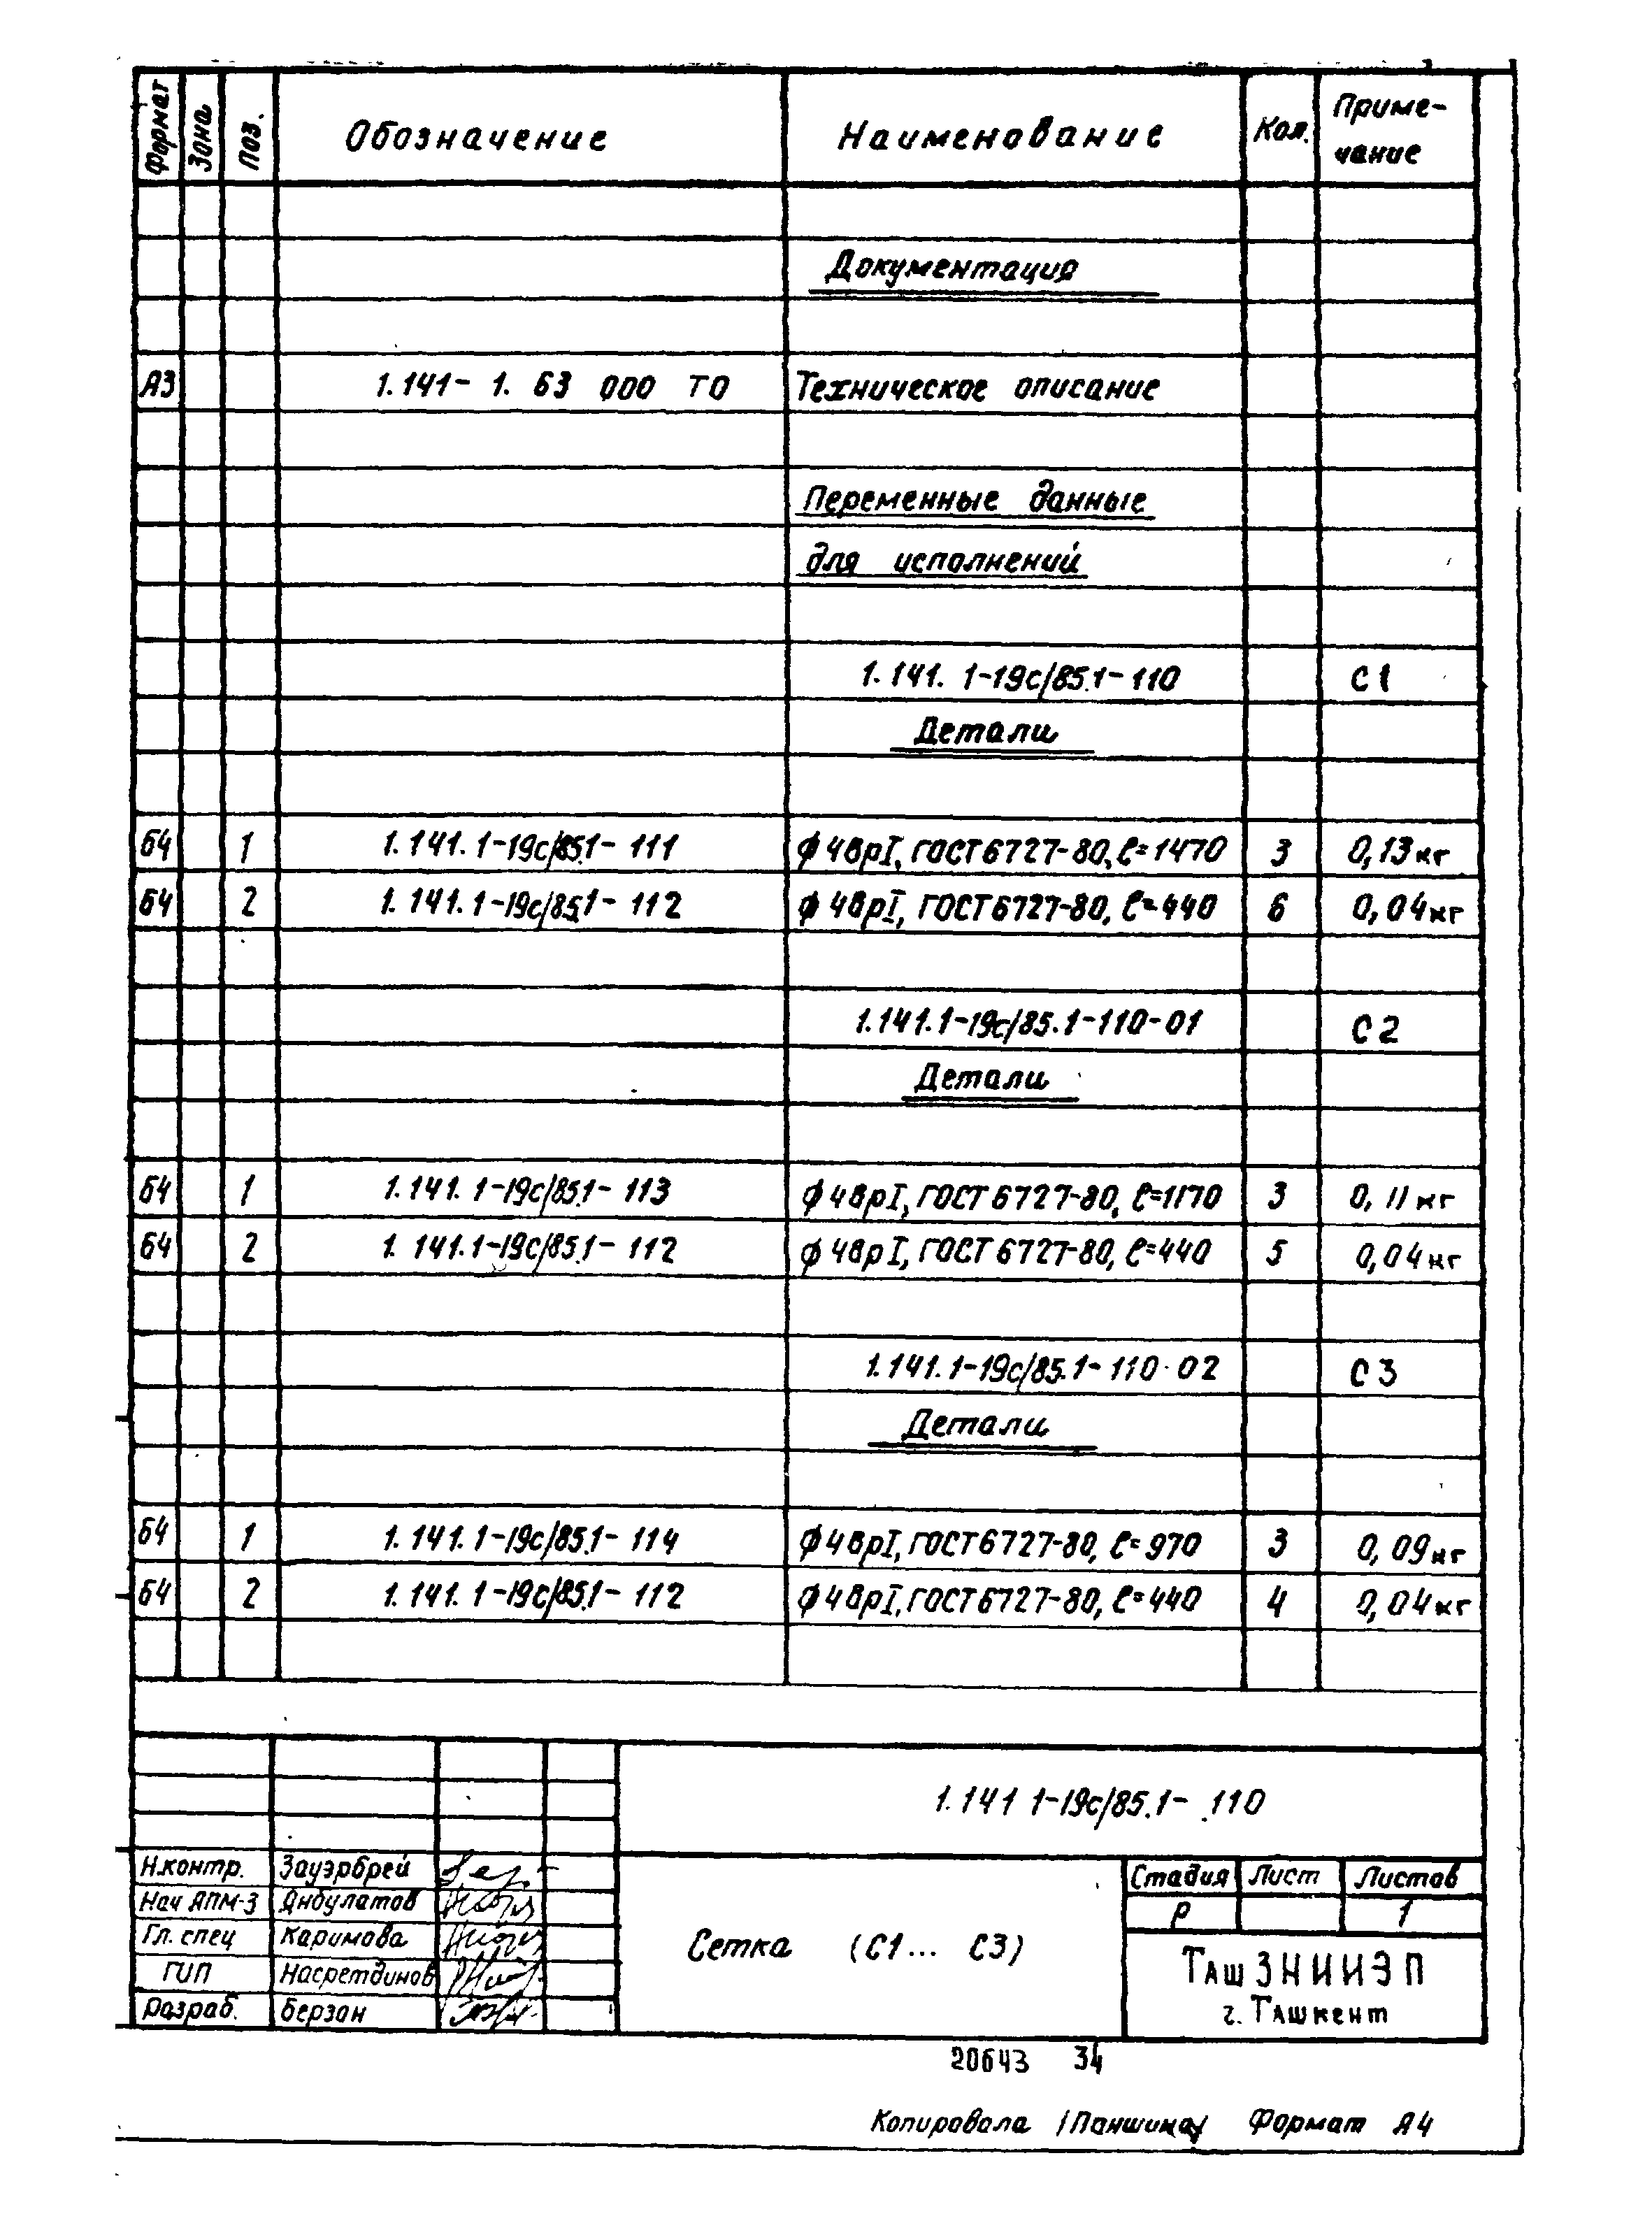 Формат Зона Поз. Обозначение Наименование Кол. Приме-
чание
Документация
А3 1.141- 1. 63 000 ТО Техническое описание
Переменные данные
для исполнений
1.141. 1-19с/85.1-110 С1
Детали
б4 1 1.141.1-19с/85.1-111 ϕ4ВрI, ГОСТ 6727-80, ℓ=1470 3 0,13кг
б4 2 1.141.1-19с/85.1-112 ϕ4ВрI, ГОСТ 6727-80, ℓ=440 6 0,04кг
1.141.1-19с/85.1-110-01 С2
Детали
б4 1 1.141.1-19с/85.1-113 ϕ4ВрI, ГОСТ 6727-80, ℓ=1170 3 0,11кг
б4 2 1.141.1-19с/85.1-112 ϕ4ВрI, ГОСТ 6727-80, ℓ=440 5 0,04кг
1.141.1-19с/85.1-110-02 С3
Детали
б4 1 1.141.1-19с/85.1-114 ϕ4ВрI, ГОСТ 6727-80, ℓ=970 3 0,09кг
б4 2 1.141.1-19с/85.1-112 ϕ4ВрI, ГОСТ 6727-80, ℓ=440 4 0,04кг
1.141 1-19с/85.1- 110
Н.контр. Зауэрбрей
Нач АПМ-3 Янбулатов
Гл. спец Каримова
ГИП Насретдинов
Разраб. Берзон
Сетка (С1... С3)
Стадия Лист Листов
Р 1
ТашЗНИИЭП
г. Ташкент
20643 34
Копировала /Паншина/ Формат А4